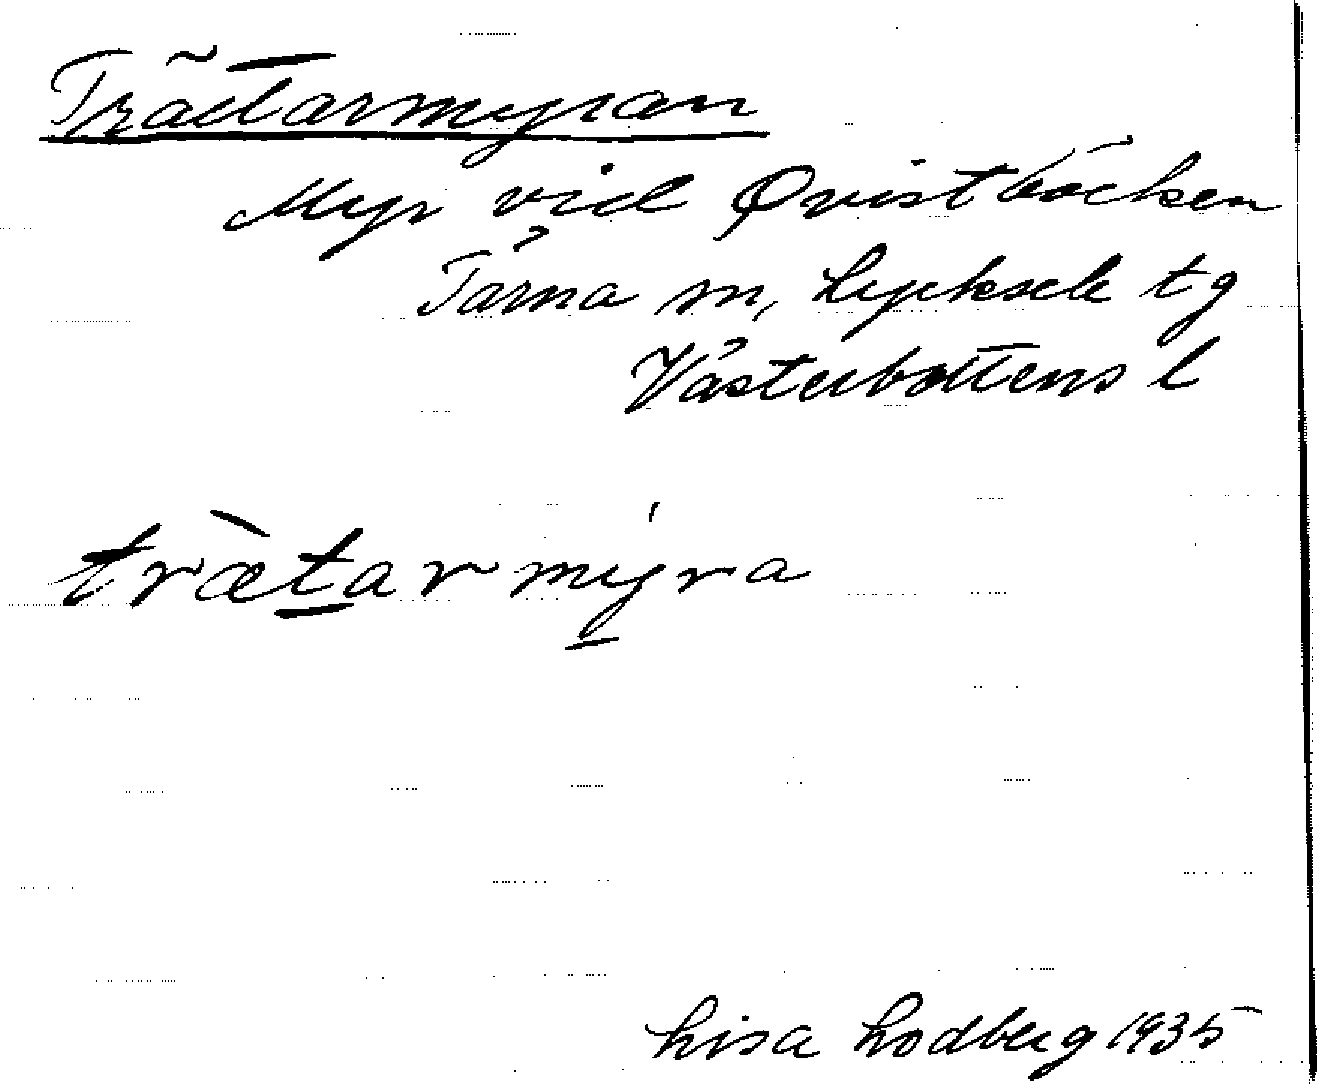 Trätarmyran
Myr vid Qvistbäcken
Tärna sn, Lycksele tg
Västerbottens l
træ̀tarmýra
Lisa Lodberg 1935